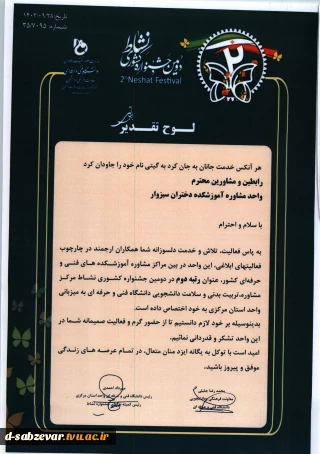 تاریخ: ۱۴۰۲/۰۹/۲۸
دومین جشنواره کشوری نشاط
2nd Neshat Festival
۲
لوح تقدیر
هر آنکس خدمت جانان به جان کرد به گیتی نام خود را جاودان کرد
رابطین و مشاورین محترم
واحد مشاوره آموزشکده دختران سبزوار
با سلام و احترام
به پاس فعالیت، تلاش و خدمت دلسوزانه شما همکاران ارجمند در چارچوب
فعالیتهای ابلاغی، این واحد در بین مراکز مشاوره آموزشکده های فنی و
حرفه‌ای کشور، عنوان رتبه دوم در دومین جشنواره کشوری نشاط مرکز
مشاوره، تربیت بدنی و سلامت دانشجویی دانشگاه فنی و حرفه ای به میزبانی
واحد استان مرکزی به خود اختصاص داده است.
بدینوسیله بر خود لازم دانستیم تا از حضور گرم و فعالیت صمیمانه شما در
این واحد تشکر و قدردانی نمائیم.
امید است با توکل به یگانه ایزد منان متعال، در تمام عرصه های زندگی
موفق و پیروز باشید.
محمد رضا جلیلی
مهرداد احمدی
d-sabzevar.tvu.ac.ir